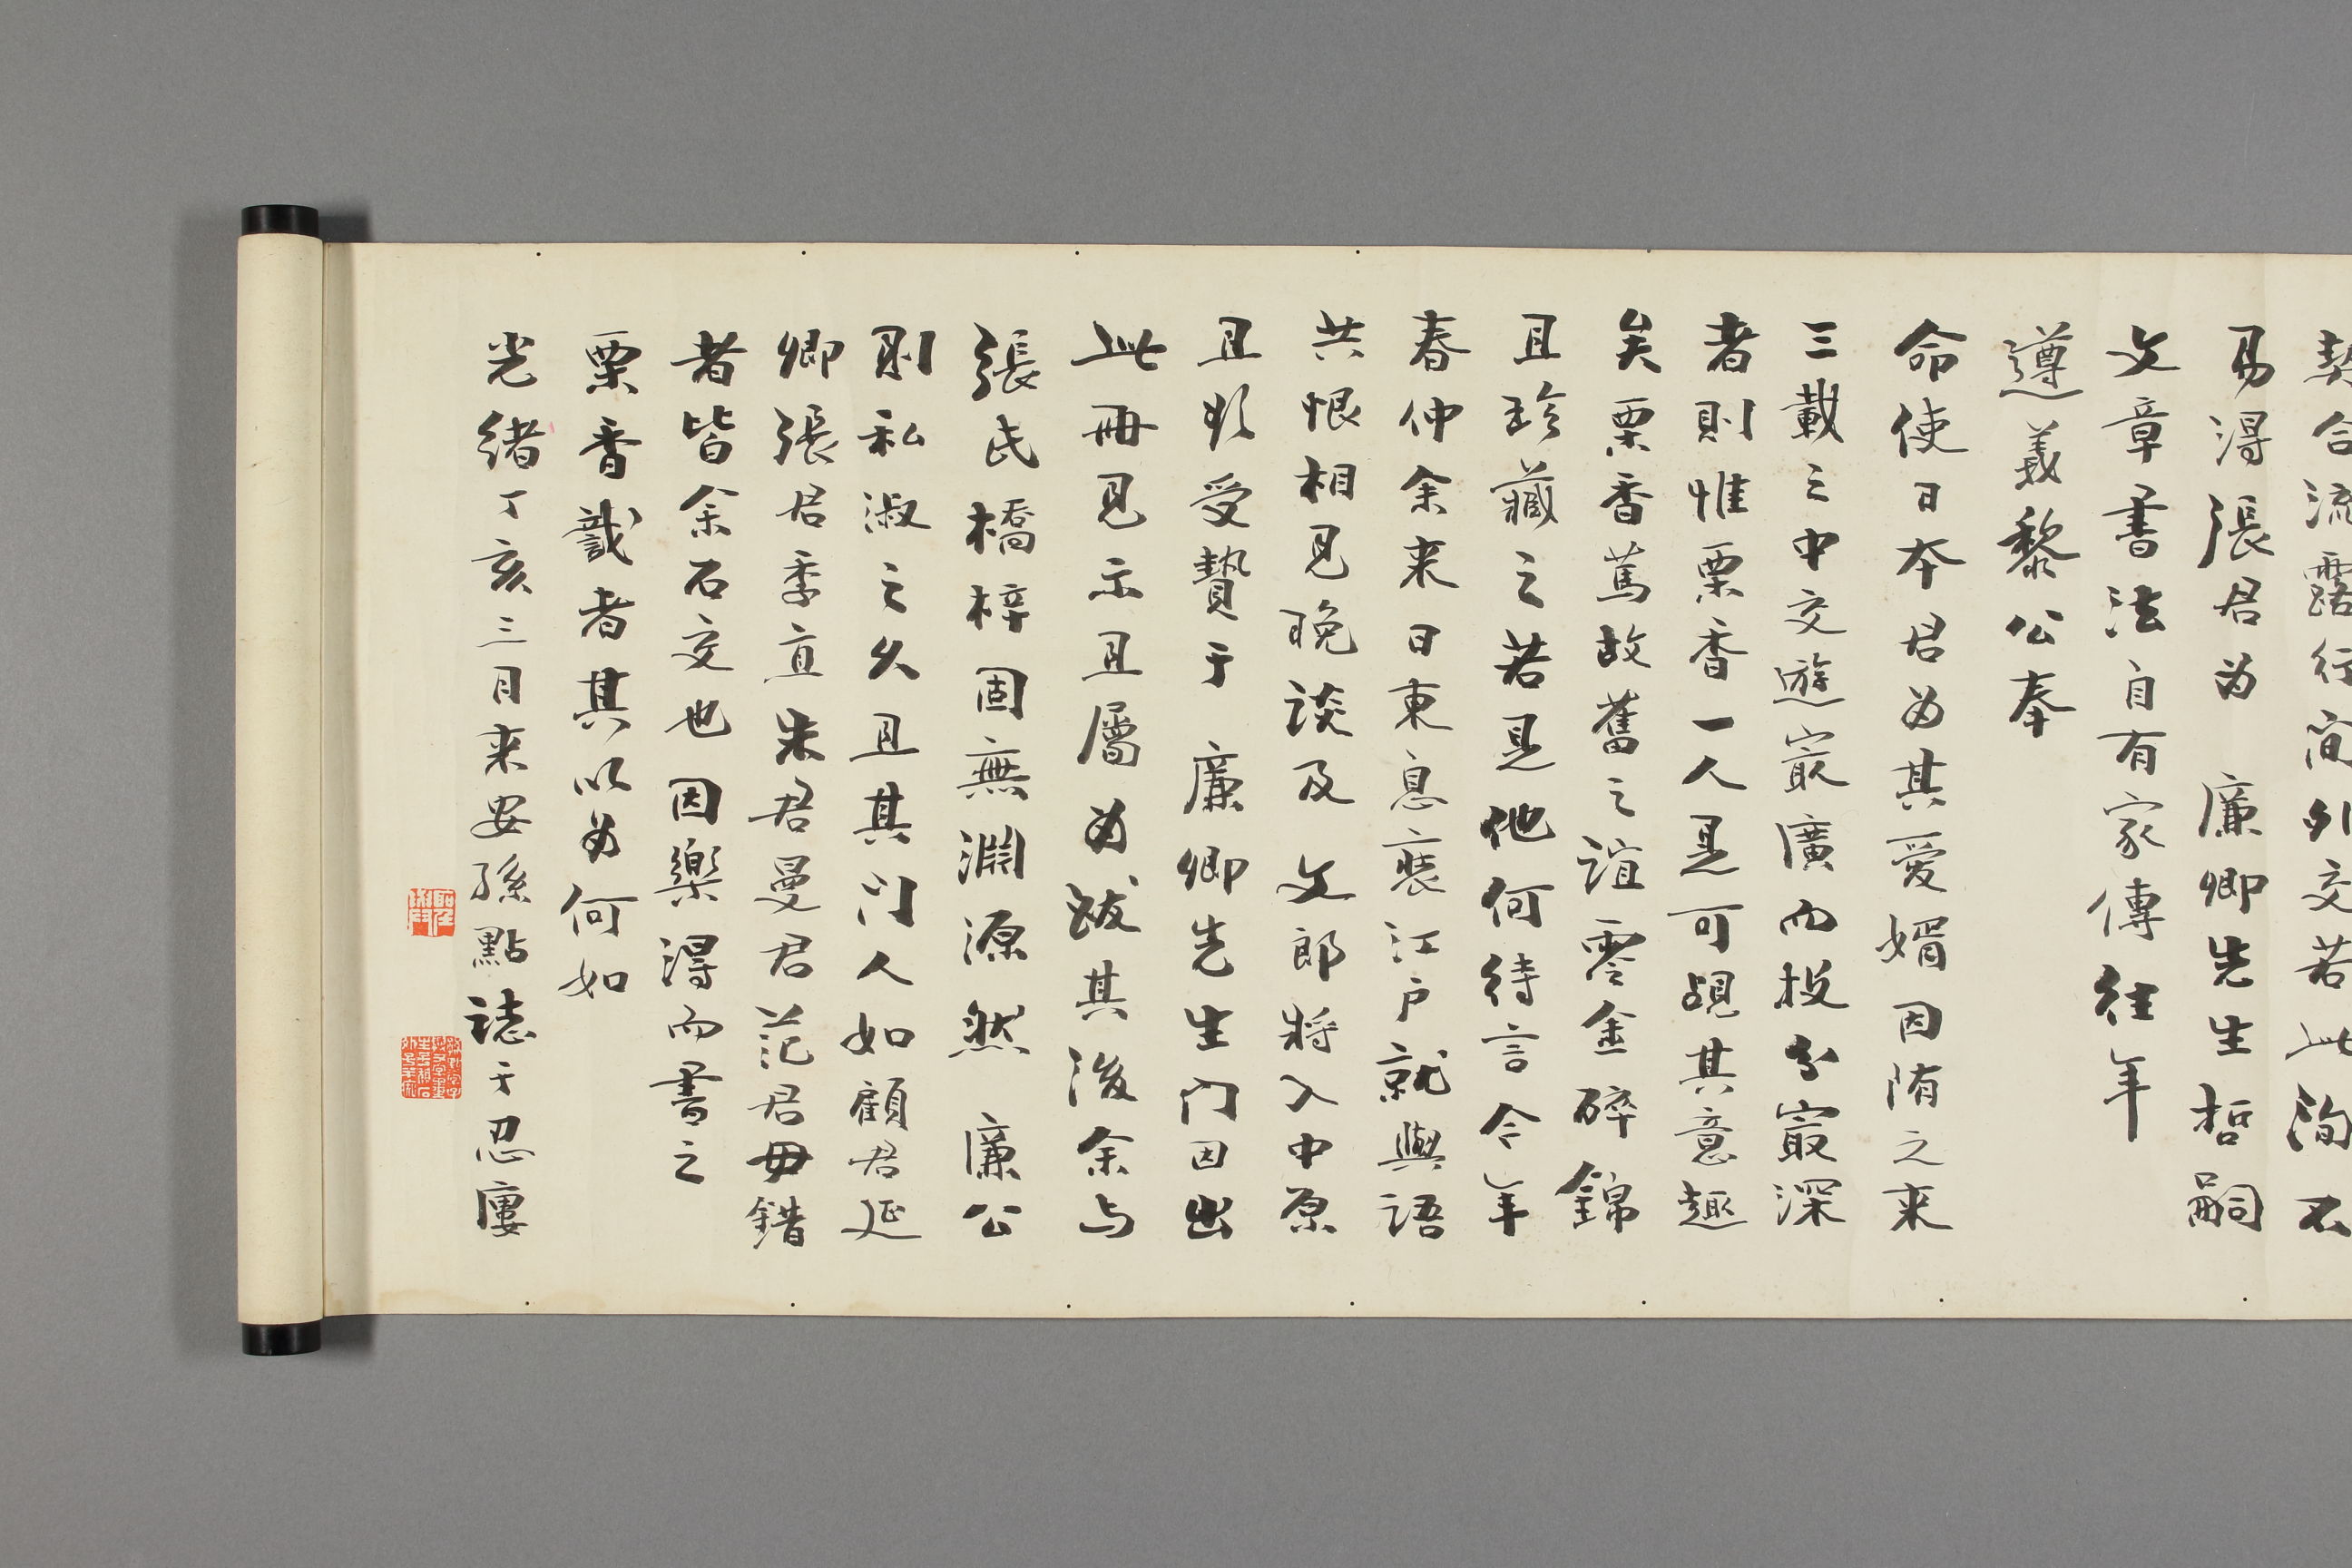 契合流露行間外交若此洵不
易得張君為 廉卿先生哲嗣
文章書法自有家傳往年
遵義黎公奉
命使日本君為其愛婿因隨之来
三載之中交遊冣廣而投分冣深
者則惟栗香一人是可覘其意趣
矣栗香萬故舊之誼零金碎錦
且珍藏之若是他何待言今年
春仲余来日東息裝江戶就與語
共恨相見晚談及 文郎將入中原
且欲受贄于 廉卿先生门因出
此冊見示且屬為跋其後余与
張氏橋梓固無淵源然 廉公
則私淑之久且其门人如顧君延
卿張君季直朱君曼君范君毋錯
者皆余石交也因樂得而書之
栗香識者其以為何如
光緒丁亥三月来安孫點誌于忍廔